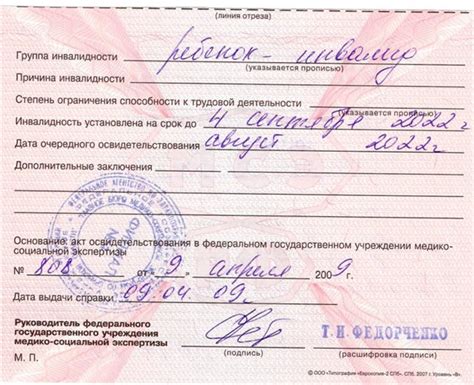 (линия отреза)
Группа инвалидности ребенок-инвалид
(указывается прописью)
Причина инвалидности
Степень ограничения способности к трудовой деятельности
(указывается прописью)
Инвалидность установлена на срок до 4 сентября 2022г
Дата очередного освидетельствования август 2022г
Дополнительные заключения
Основание: акт освидетельствования в федеральном государственном учреждении медико-
социальной экспертизы
№ 808 от " 9 " апреля 2009 г.
Дата выдачи справки 09.04.09г.
Руководитель федерального
государственного учреждения
медико-социальной экспертизы
Т.И ФЕДОРЧЕНКО
М. П. (подпись) (расшифровка подписи)
© ООО «Типография «Еврокопия-2 СПб», СПб, 2007 г. Уровень «В».